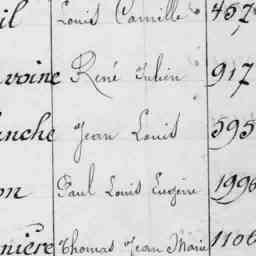 il Louis Camille 457
voine René Julien 917
anche Jean Louis 595
on Paul Louis Eugène 1996
nière Thomas Jean Marie 1106